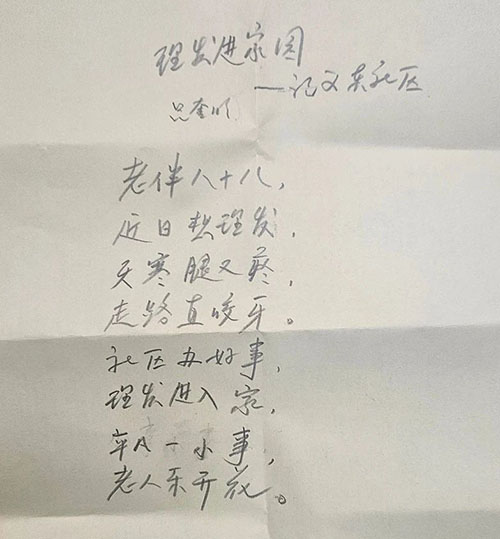 理发进家园
——记文东社区
吕奎
老伴八十八，
近日想理发，
天寒腿又疼，
走路直咬牙。
社区办好事，
理发进入家，
平凡一小事，
老人乐开花。